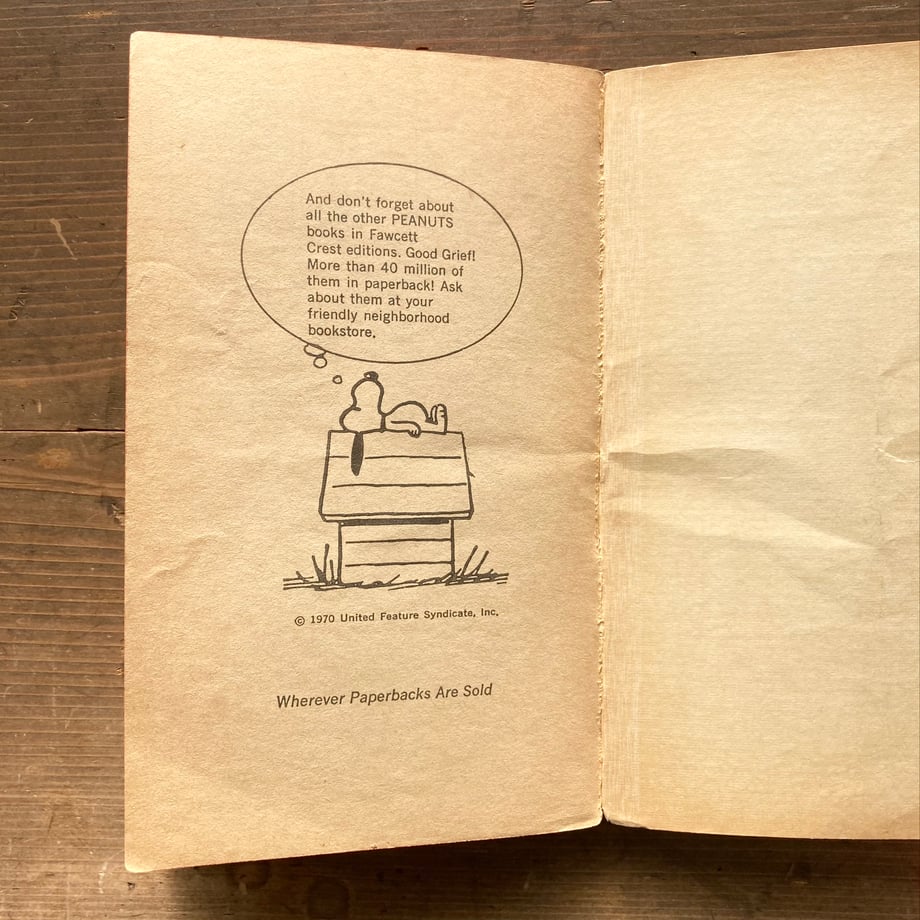 And don't forget about
all the other PEANUTS
books in Fawcett
Crest editions. Good Grief!
More than 40 million of
them in paperback! Ask
about them at your
friendly neighborhood
bookstore.
© 1970 United Feature Syndicate, Inc.
Wherever Paperbacks Are Sold